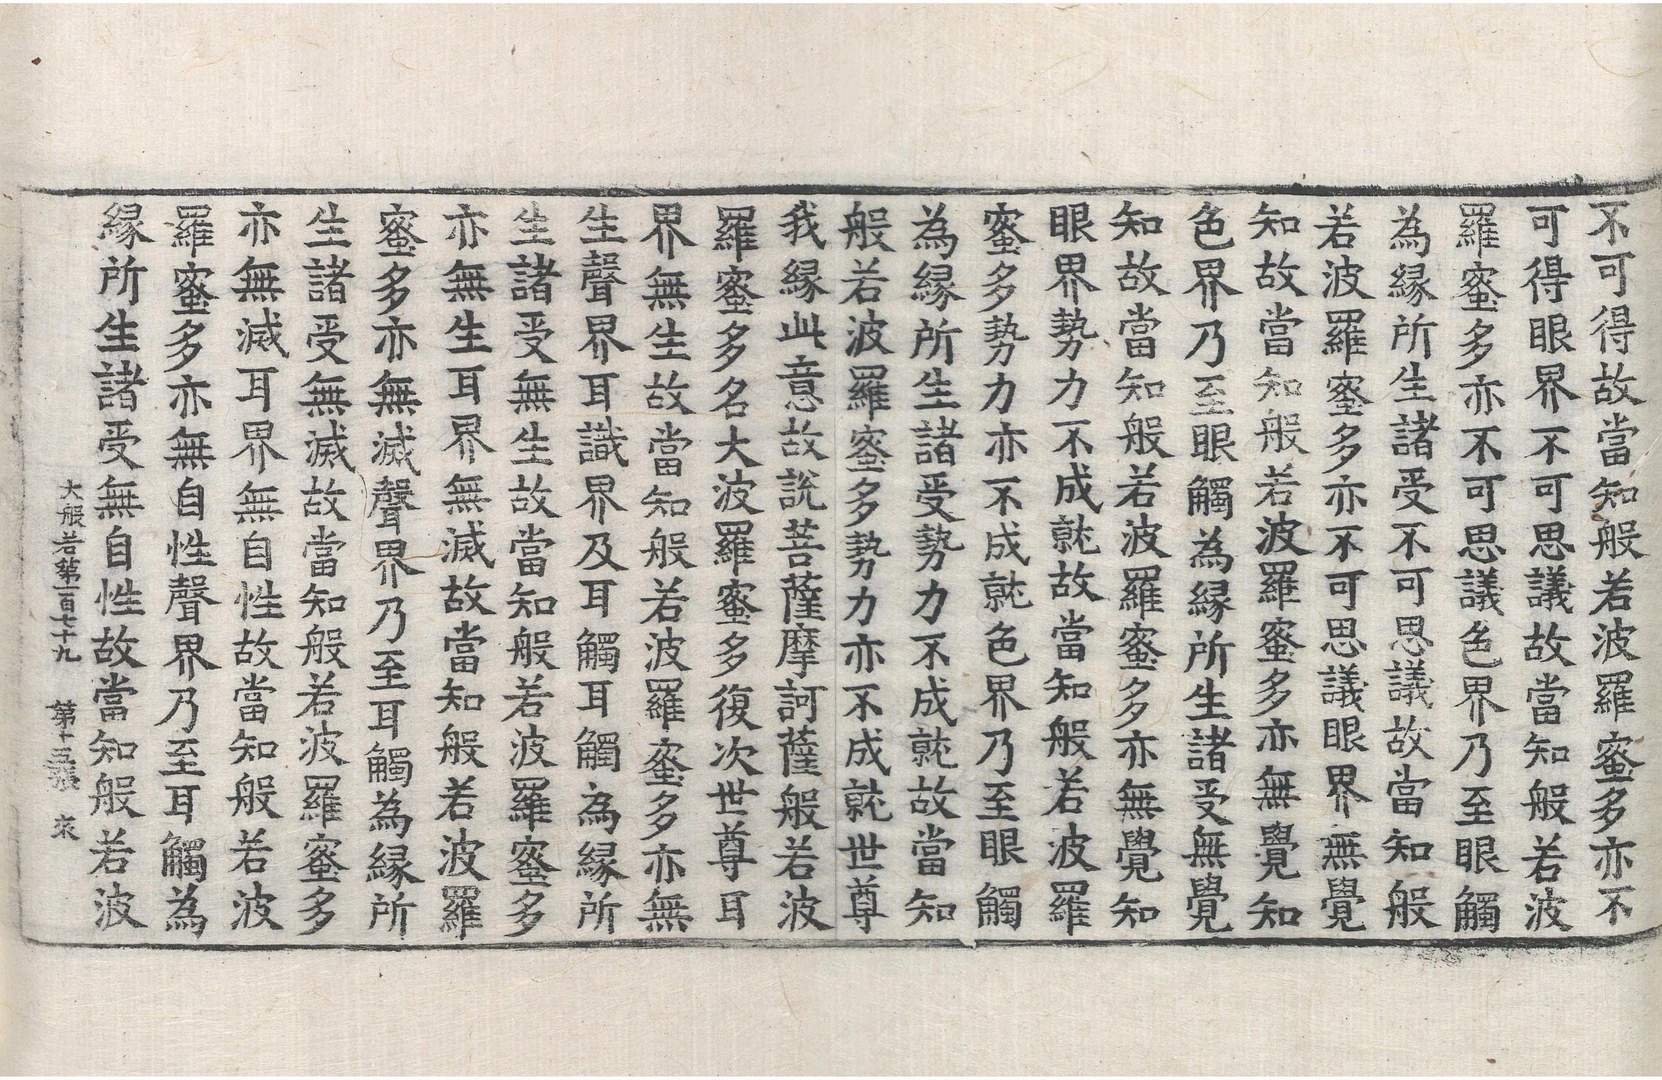 不可得故當知般若波羅蜜多亦不
可得眼界不可思議故當知般若波
羅蜜多亦不可思議色界乃至眼觸
為緣所生諸受不可思議故當知般
若波羅蜜多亦不可思議眼界無覺
知故當知般若波羅蜜多亦無覺知
色界乃至眼觸為緣所生諸受無覺
知故當知般若波羅蜜多亦無覺知
眼界勢力不成就故當知般若波羅
蜜多勢力亦不成就色界乃至眼觸
為緣所生諸受勢力不成就故當知
般若波羅蜜多勢力亦不成就世尊
我緣此意故說菩薩摩訶薩般若波
羅蜜多名大波羅蜜多復次世尊耳
界無生故當知般若波羅蜜多亦無
生聲界耳識界及耳觸耳觸為緣所
生諸受無生故當知般若波羅蜜多
亦無生耳界無滅故當知般若波羅
蜜多亦無滅聲界乃至耳觸為緣所
生諸受無滅故當知般若波羅蜜多
亦無滅耳界無自性故當知般若波
羅蜜多亦無自性聲界乃至耳觸為
緣所生諸受無自性故當知般若波
大般若第一百七十九 第十五張 來